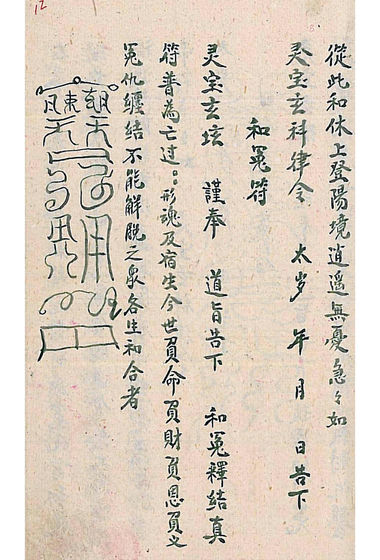 從此和休上登陽境逍遥無憂急々如
灵宝玄科律令 太岁 年 月 日告下
和冤符
灵宝玄坛 謹奉 道旨告下 和冤釋结真
符普為亡过:。形魂及宿生今世負命負財負恩負义
冤仇纏结不能解脱之衆各生和合者
12